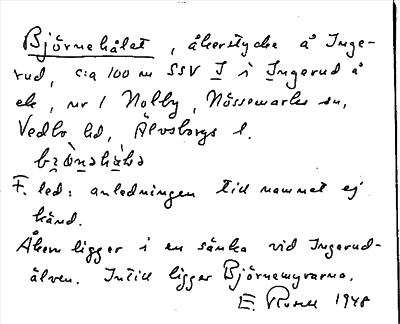 Björnehålet, åkerstycke å Inge-
rud, c:a 100 m SSV I i Ingerud å
ek, nr 1 Nolby, Nössemarks sn,
Vedbo hd, Älvsborgs l.
F. led: anledningen till namnet ej
känd.
Åkern ligger i en sänka vid Ingerud-
älven. Intill ligger Björnemyrarna.
E. 1948